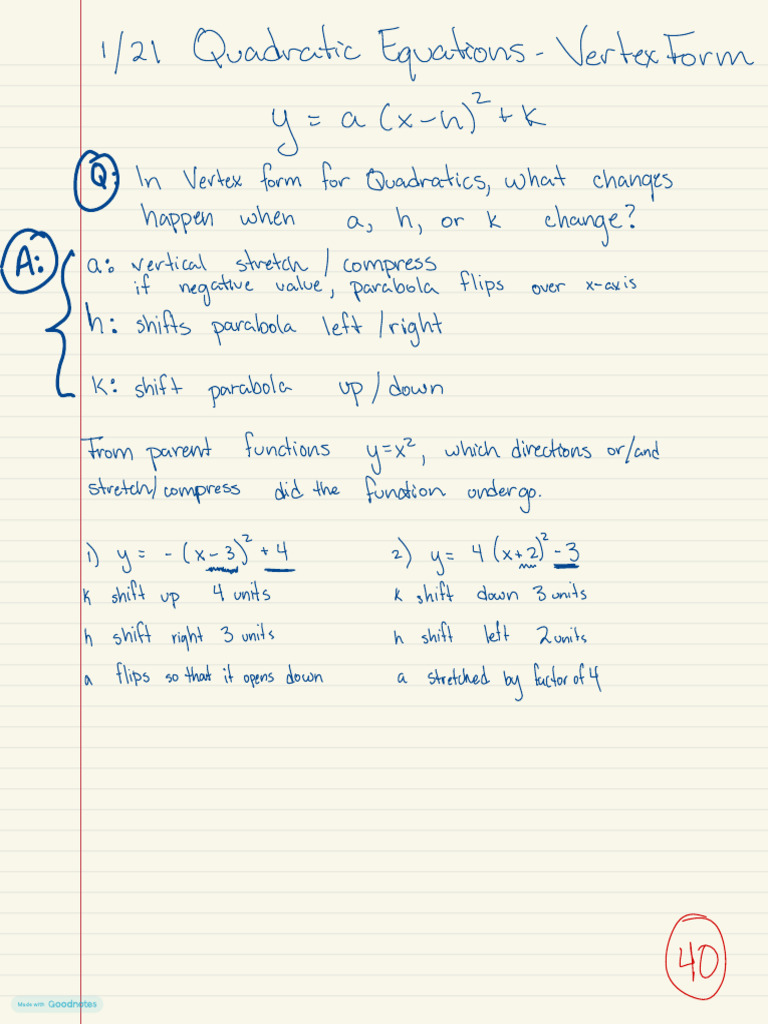 1/21 Quadratic Equations - Vertex Form
y = a (x-h)² + k
Q: In Vertex form for Quadratics, what changes
happen when a, h, or k change?
A:
a: vertical stretch / compress
if negative value, parabola flips over x-axis
h: shifts parabola left / right
k: shift parabola up / down
From parent functions y=x², which directions or/and
stretch/compress did the function undergo.
1) y = -(x-3)² + 4
k shift up 4 units
h shift right 3 units
a flips so that it opens down
2) y = 4 (x+2)² - 3
k shift down 3 units
h shift left 2 units
a stretched by factor of 4
40
Made with Goodnotes